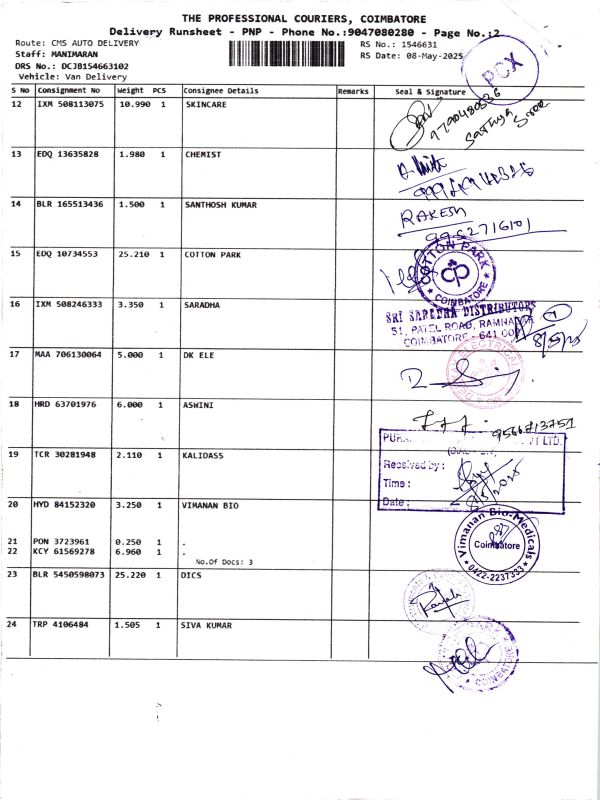 THE PROFESSIONAL COURIERS, COIMBATORE
Delivery Runsheet - PNP - Phone No.:9047080280 - Page No.:2
Route: CMS AUTO DELIVERY RS No.: 1546631
Staff: MANIMARAN RS Date: 08-May-2025
DRS No.: DCJB154663102
Vehicle: Van Delivery
PCX
S No Consignment No Weight PCS Consignee Details Remarks Seal & Signature
12 IXM 508113075 10.990 1 SKINCARE
9790480836
Sathya
Sree
13 EDQ 13635828 1.980 1 CHEMIST
14 BLR 165513436 1.500 1 SANTHOSH KUMAR
RAKESH
9952716101
15 EDQ 10734553 25.210 1 COTTON PARK
COTTON PARK
cp
COIMBATORE
16 IXM 508246333 3.350 1 SARADHA
SRI SARADHA DISTRIBUTORS
51, PATEL ROAD, RAMNAGAR
COIMBATORE - 641 009
8/5/25
17 MAA 706130064 5.000 1 DK ELE
18 HRD 63701976 6.000 1 ASWINI
9566713751
19 TCR 30281948 2.110 1 KALIDASS
PVT LTD.
Received by :
Time :
Date :
20 HYD 84152320 3.250 1 VIMANAN BIO
Vimanan Bio-Medicals
Coimbatore
0422-2237333
21 PON 3723961 0.250 1 .
22 KCY 61569278 6.960 1 .
No.Of Docs: 3
23 BLR 5450598073 25.220 1 DICS
24 TRP 4106484 1.505 1 SIVA KUMAR
COIMBATORE